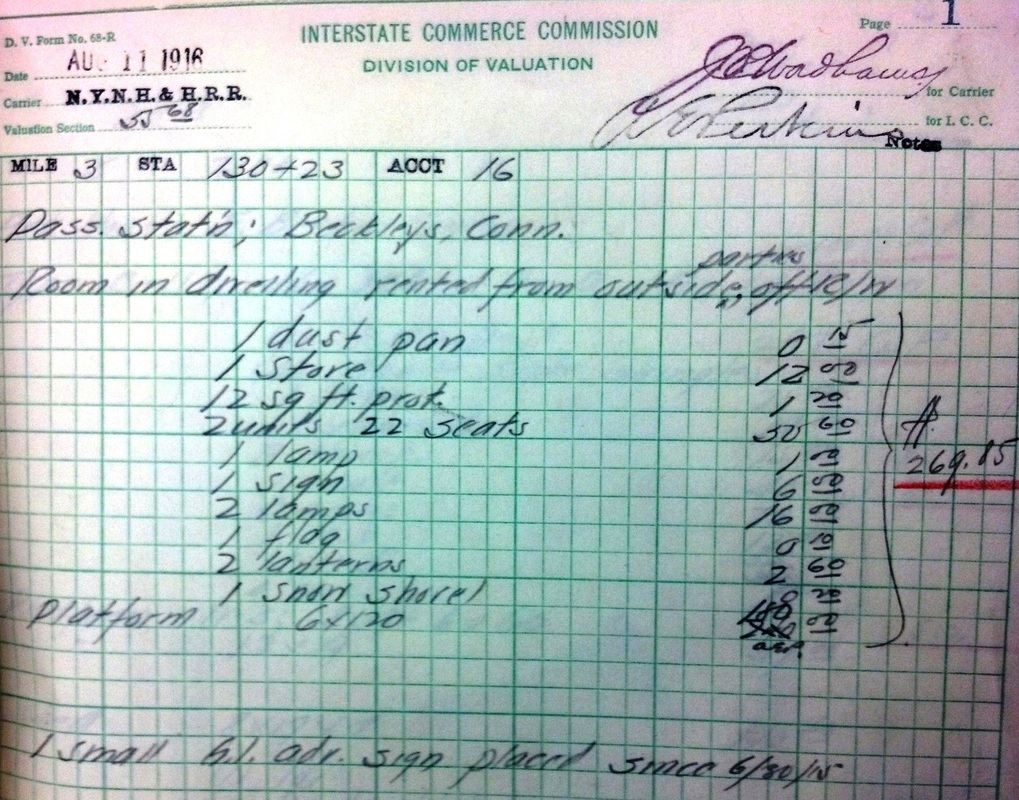 D. V. Form No. 68-R
INTERSTATE COMMERCE COMMISSION
Page 1
Date AUG 11 1916
DIVISION OF VALUATION
Carrier N.Y.N.H. & H.R.R.
for Carrier
Valuation Section 55 68
Perkins for I. C. C.
Notes
MILE 3 STA 130+23 ACCT 16
Pass. stat'n; Beckleys, Conn.
parties
Room in dwelling rented from outside, off R/W
1 dust pan 0 15
1 stove 12 00
12 sq ft. prot. 1 20
2 units 22 seats 50 60
1 lamp 1 00
1 sign 6 50
2 lamps 16 00
1 flag 0 10
2 lanterns 2 60
1 snow shovel 0 20
Platform 6x120 180 00
$ 269.85
1 small adv. sign placed since 6/30/15